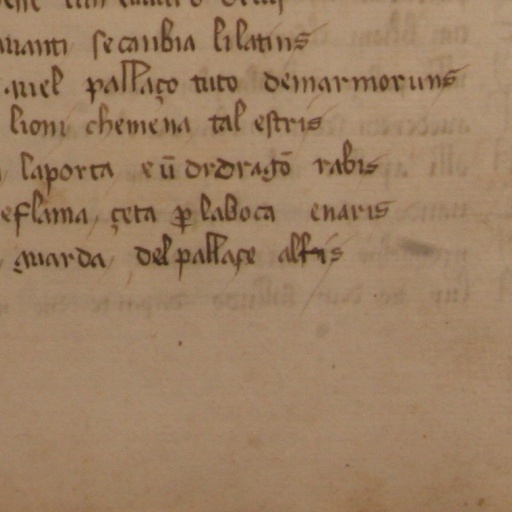 uanti secanbia lilatins
quel pallaço tuto demarmoruns
lioni chemena tal estris
laporta e ū drdragō rabis
eflama çeta ꝑ laboca enaris
guarda del pallaçe altris